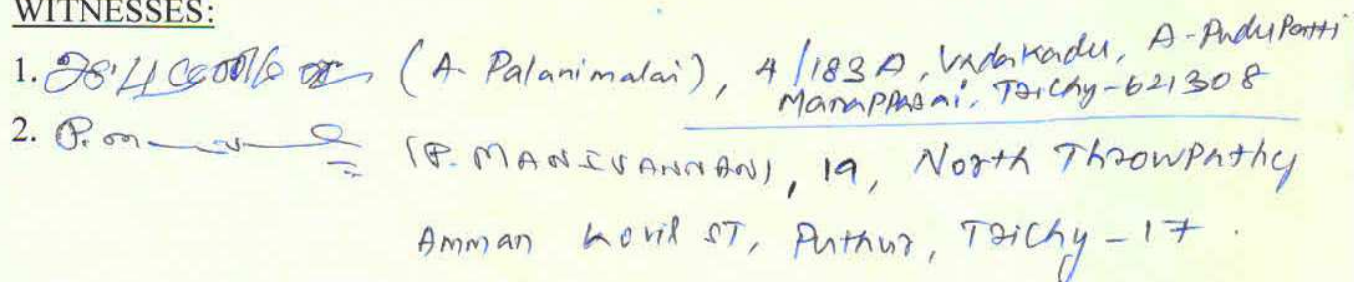 WITNESSES:
1. (A. Palanimalai), 4/183A, Vadakadu, A-Pudupatti
Manapparai, Trichy-621308
2. P. (P. MANIVANNAN), 19, North Throwpathy
Amman Kovil ST, Puthur, Trichy-17.